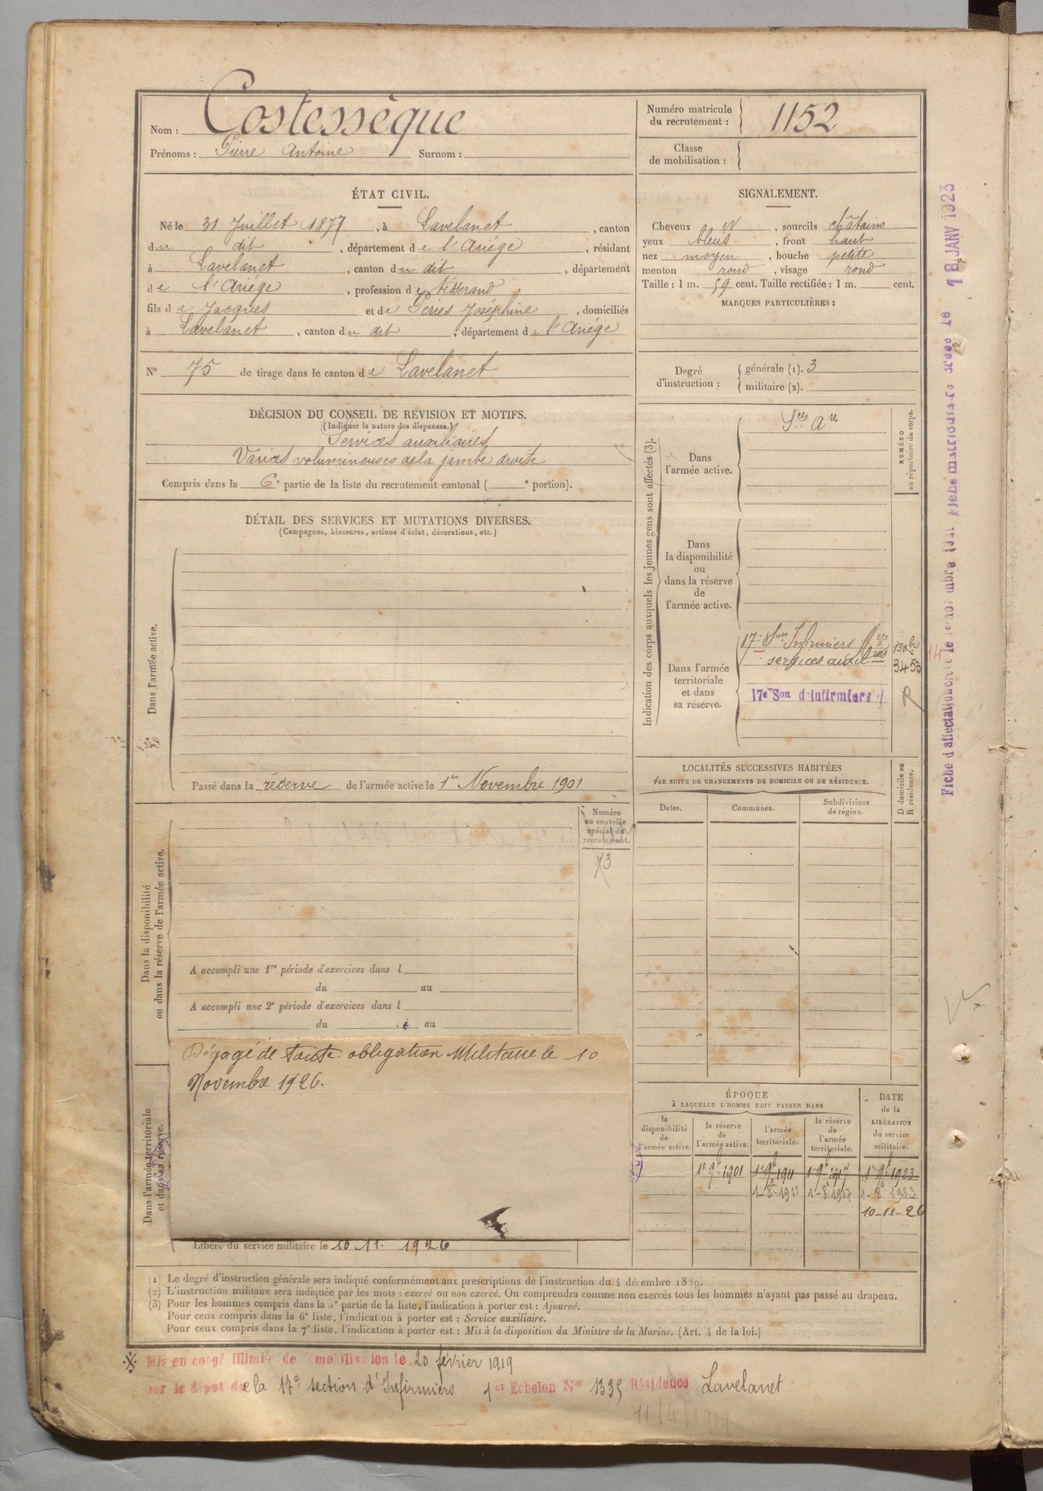 Nom : Costessèque
Prénoms : Pierre Antoine Surnom :
Numéro matricule du recrutement : 1152
Classe de mobilisation :
ÉTAT CIVIL.
Né le 31 Juillet 1877, à Lavelanet, canton
du dit, département de l'Ariége, résidant
à Lavelanet, canton du dit, département
de l'Ariége, profession de tisserand
fils de Jacques et de Péries Joséphine, domiciliés
à Lavelanet, canton du dit, département de l'Ariége
N° 75 de tirage dans le canton de Lavelanet
SIGNALEMENT.
Cheveux et, sourcils châtains
yeux bleus, front haut
nez moyen, bouche petite
menton rond, visage rond
Taille : 1 m. 59 cent. Taille rectifiée : 1 m. cent.
MARQUES PARTICULIÈRES :
Degré d'instruction : générale (1). 3
militaire (2).
DÉCISION DU CONSEIL DE REVISION ET MOTIFS.
(Indiquer la nature des dispenses.)
Services auxiliaires
Varices volumineuses de la jambe droite
Compris dans la 6e partie de la liste du recrutement cantonal ( e portion).
DÉTAIL DES SERVICES ET MUTATIONS DIVERSES.
(Campagnes, blessures, actions d'éclat, décorations, etc.)
Dans l'armée active.
Passé dans la réserve de l'armée active le 1er Novembre 1901
Indication des corps auxquels les jeunes gens sont affectés (3).
Dans l'armée active.
NUMÉRO au répertoire du corps.
Dans la disponibilité ou dans la réserve de l'armée active.
Dans l'armée territoriale et dans sa réserve.
17e Son Infirmiers Mres
services auxil
17e Son d'infirmiers
3453
LOCALITÉS SUCCESSIVES HABITÉES
PAR SUITE DE CHANGEMENTS DE DOMICILE OU DE RÉSIDENCE.
Dates. Communes. Subdivisions de région. D domicile ou R résidence.
Dans la disponibilité ou dans la réserve de l'armée active.
Numéro au contrôle spécial du recrutement.
73
A accompli une 1re période d'exercices dans l
du au
A accompli une 2e période d'exercices dans l
du au
Dans l'armée territoriale et dans sa réserve.
Dégagé de toute obligation Militaire le 10
Novembre 1926.
Libéré du service militaire le 10.11. 1926
ÉPOQUE
À LAQUELLE L'HOMME DOIT PASSER DANS
la disponibilité de l'armée active. la réserve de l'armée active. l'armée territoriale. la réserve de l'armée territoriale.
DATE de la LIBÉRATION du service militaire.
1er 9bre 1901 1er 9bre 1911 1er 9bre 1917 1er 9bre 1923
10-11-26
(1) Le degré d'instruction générale sera indiqué conformément aux prescriptions de l'instruction du 4 décembre 1889.
(2) L'instruction militaire sera indiquée par les mots : exercé ou non exercé. On comprendra comme non exercés tous les hommes n'ayant pas passé au drapeau.
(3) Pour les hommes compris dans la 5e partie de la liste, l'indication à porter est : Ajourné.
Pour ceux compris dans la 6e liste, l'indication à porter est : Service auxiliaire.
Pour ceux compris dans la 7e liste, l'indication à porter est : Mis à la disposition du Ministre de la Marine. (Art. 4 de la loi.)
Mis en congé illimité de démobilisation le 20 février 1919
par le dépot de la 17e section d'Infirmiers 1er Echelon N° 1335 Résidence Lavelanet
18 JANV 1923